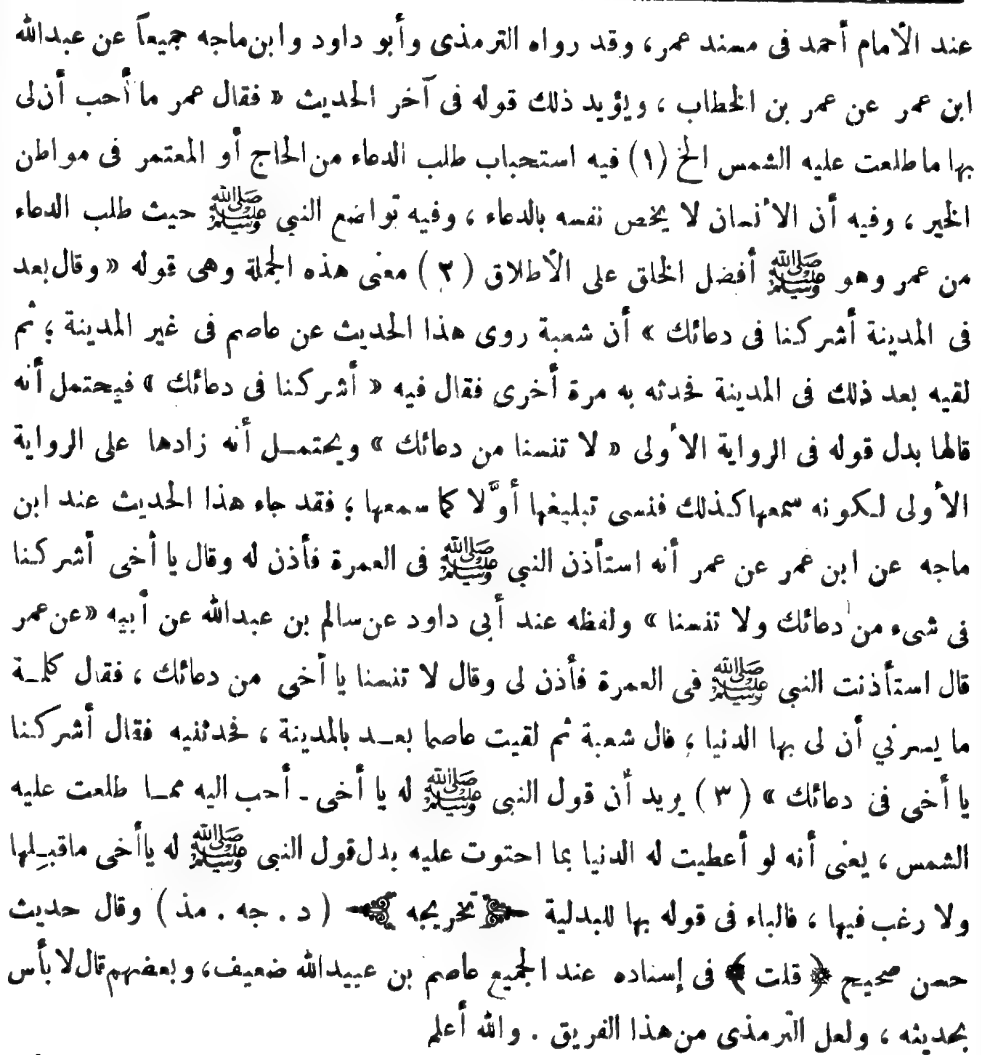 عند الأمام أحمد فى مسند عمر، وقد رواه الترمذى وأبو داود وابن ماجه جميعاً عن عبدالله
ابن عمر عن عمر بن الخطاب ، ويؤيد ذلك قوله فى آخر الحديث « فقال عمر ما أحب أن لى
بها ما طلعت عليه الشمس الخ (١) فيه استحباب طلب الدعاء من الحاج أو المعتمر فى مواطن
الخير ، وفيه أن الأنسان لا يخص نفسه بالدعاء ، وفيه تواضع النبى ﷺ حيث طلب الدعاء
من عمر وهو ﷺ أفضل الخلق على الأطلاق (٢) معنى هذه الجملة وهى قوله « وقال بعد
فى المدينة أشركنا فى دعائك » أن شعبة روى هذا الحديث عن عاصم فى غير المدينة ؛ ثم
لقيه بعد ذلك فى المدينة فحدثه به مرة أخرى فقال فيه « أشركنا فى دعائك » فيحتمل أنه
قالها بدل قوله فى الرواية الأولى « لا تنسنا من دعائك » ويحتمـل أنه زادها على الرواية
الأولى لكونه سمعها كذلك فنسى تبليغها أوَّلا كما سمعها ؛ فقد جاء هذا الحديث عند ابن
ماجه عن ابن عمر عن عمر أنه استأذن النبى ﷺ فى العمرة فأذن له وقال يا أخى أشركنا
فى شىء من دعائك ولا تنسنا » ولفظه عند أبى داود عن سالم بن عبدالله عن أبيه «عن عمر
قال استأذنت النبى ﷺ فى العمرة فأذن لى وقال لا تنسنا يا أخى من دعائك ، فقال كلمـة
ما يسرني أن لى بها الدنيا ؛ قال شعبة ثم لقيت عاصما بعـد بالمدينة ، فحدثنيه فقال أشركنا
يا أخى فى دعائك » (٣) يريد أن قول النبى ﷺ له يا أخى ـ أحب اليه ممـا طلعت عليه
الشمس ، يعنى أنه لو أعطيت له الدنيا بما احتوت عليه بدل قول النبى ﷺ له يا أخى ما قبـلها
ولا رغب فيها ، فالباء فى قوله بها للبدلية تخريجه (د . جه . مذ) وقال حديث
حسن صحيح ﴿ قلت ﴾ فى إسناده عند الجميع عاصم بن عبيدالله ضعيف، وبعضهم قال لا بأس
بحديثه ، ولعل الترمذى من هذا الفريق . والله أعلم